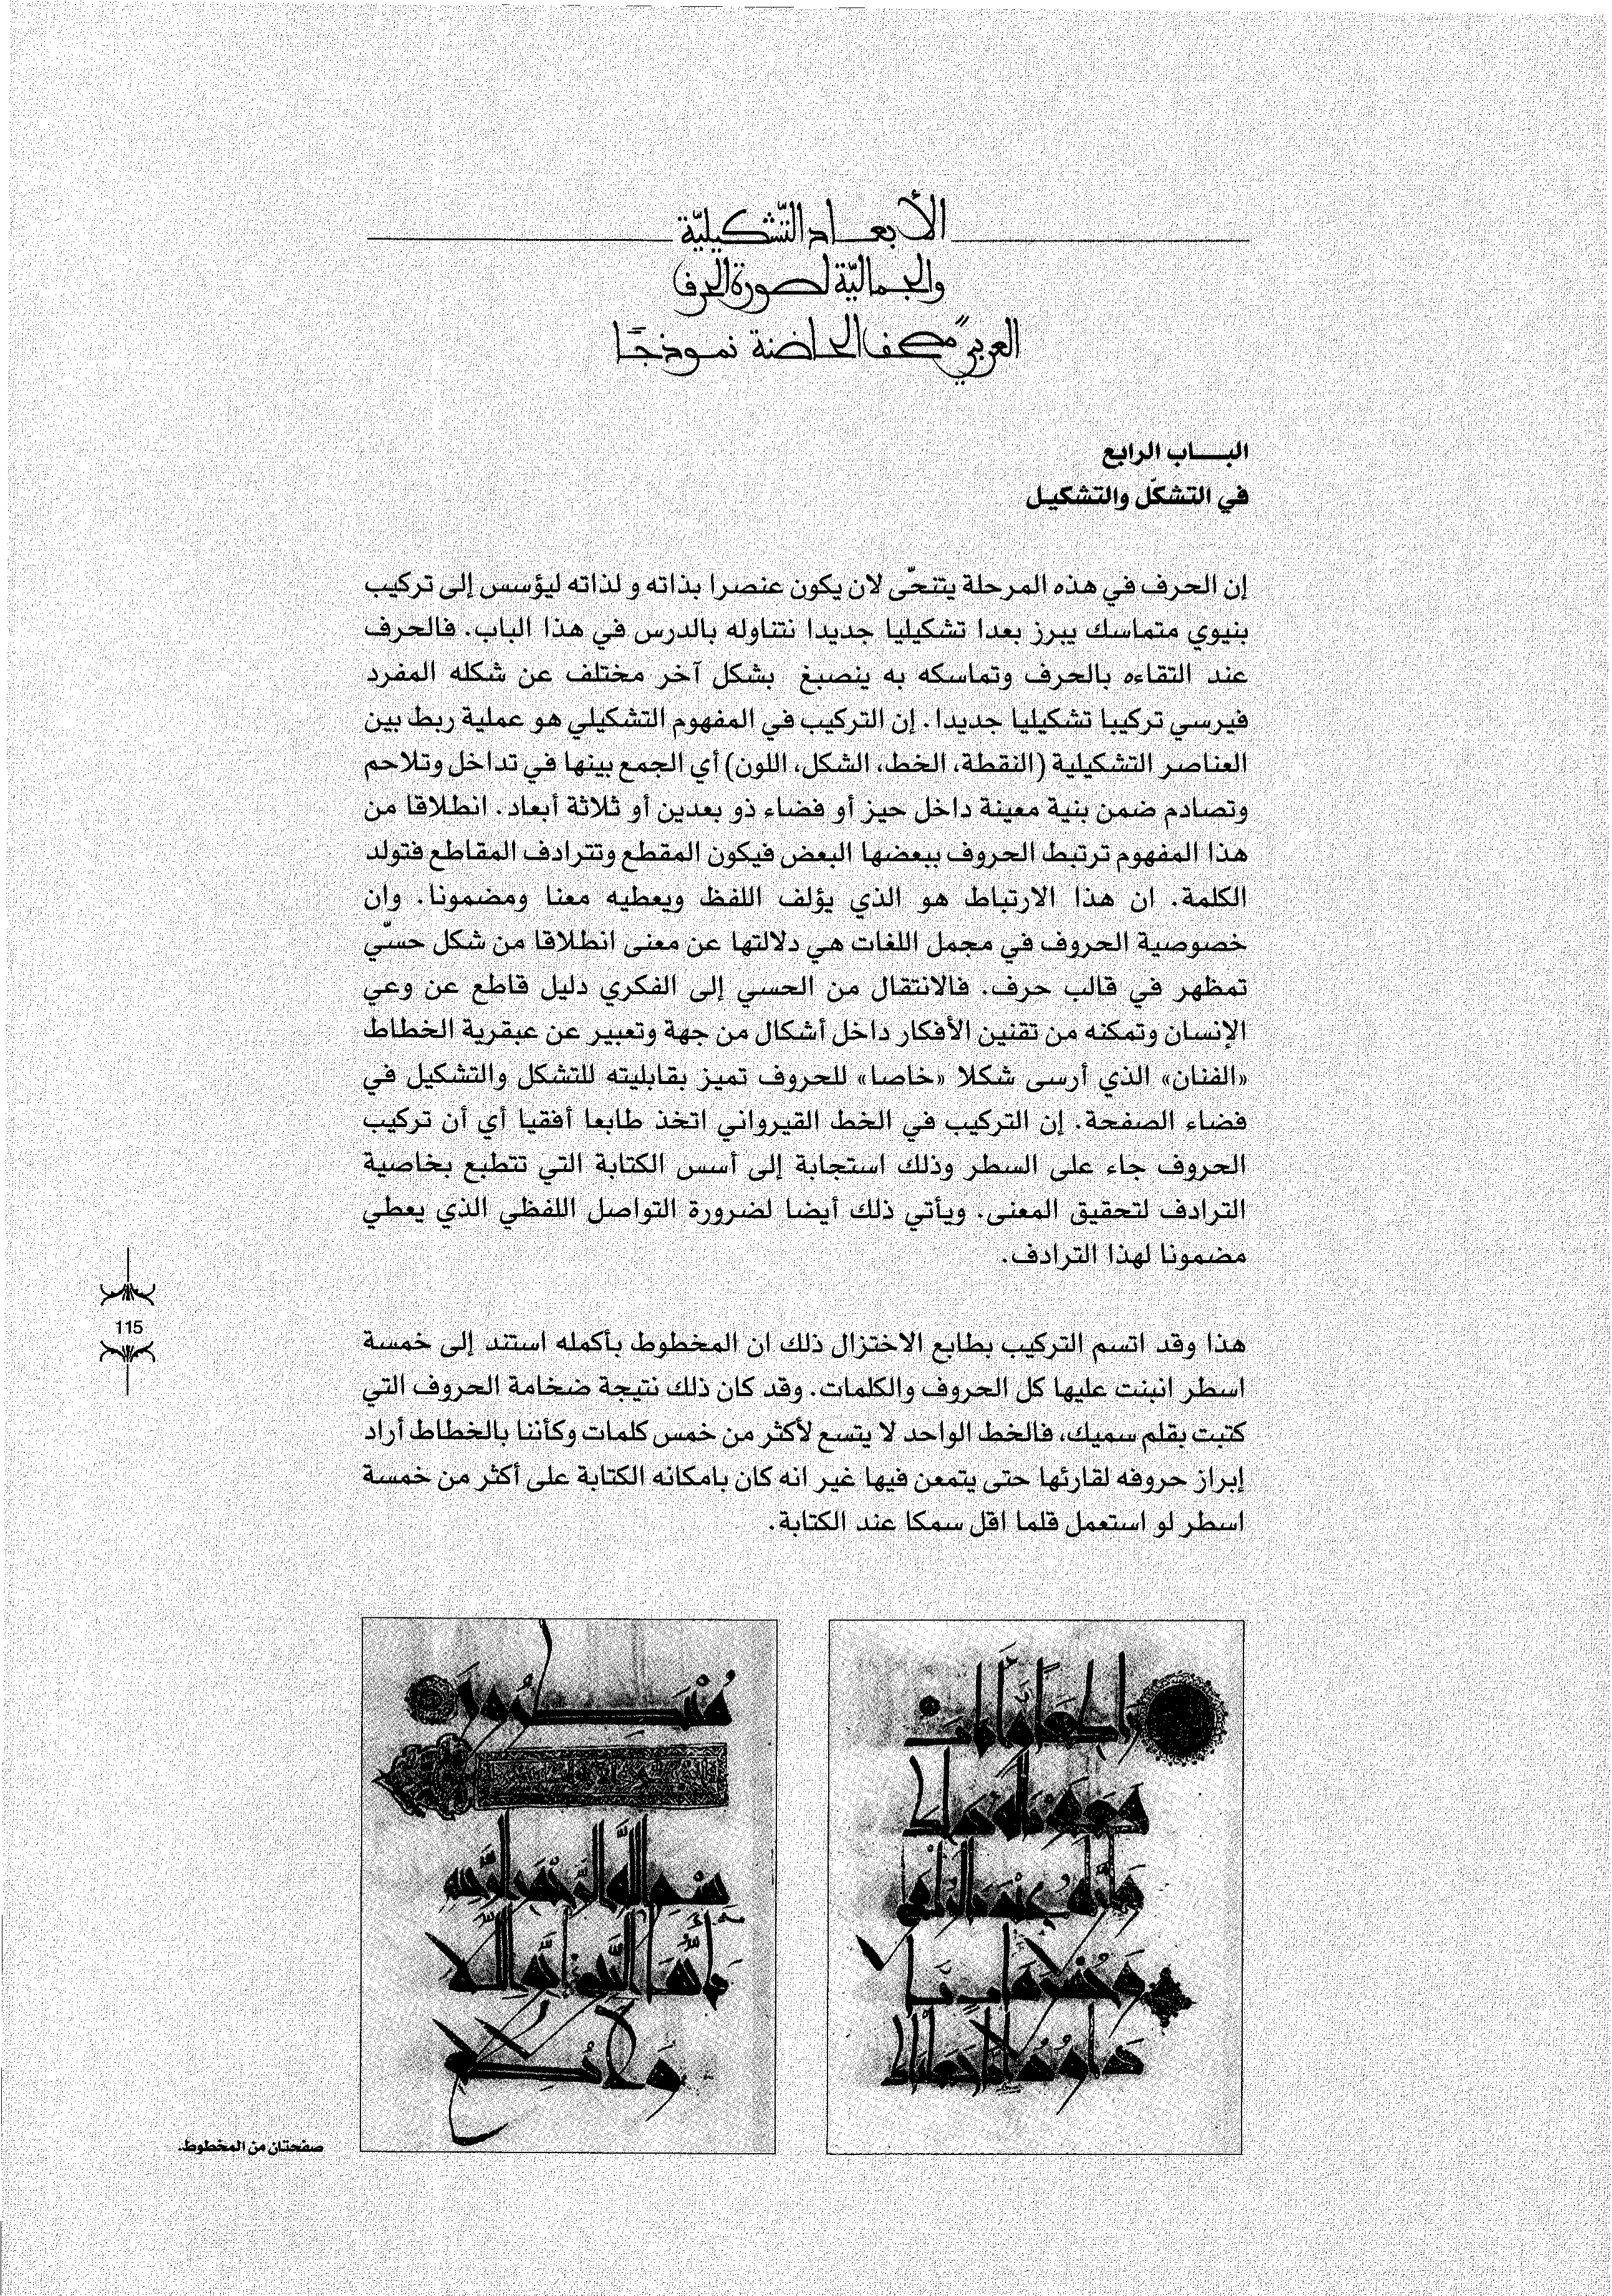 الأبعاد التّشكيليّة
والجماليّة لصورة الحرف
العربي "مصحف الحاضنة نموذجًا"
البـــاب الرابع
في التشكّل والتشكيـل
إن الحرف في هذه المرحلة يتنحّى لان يكون عنصرا بذاته و لذاته ليؤسس إلى تركيب
بنيوي متماسك يبرز بعدا تشكيليا جديدا نتناوله بالدرس في هذا الباب. فالحرف
عند التقاءه بالحرف وتماسكه به ينصبغ بشكل آخر مختلف عن شكله المفرد
فيرسي تركيبا تشكيليا جديدا. إن التركيب في المفهوم التشكيلي هو عملية ربط بين
العناصر التشكيلية (النقطة، الخط، الشكل، اللون) أي الجمع بينها في تداخل وتلاحم
وتصادم ضمن بنية معينة داخل حيز أو فضاء ذو بعدين أو ثلاثة أبعاد. انطلاقا من
هذا المفهوم ترتبط الحروف ببعضها البعض فيكون المقطع وتترادف المقاطع فتولد
الكلمة. ان هذا الارتباط هو الذي يؤلف اللفظ ويعطيه معنا ومضمونا. وان
خصوصية الحروف في مجمل اللغات هي دلالتها عن معنى انطلاقا من شكل حسّي
تمظهر في قالب حرف. فالانتقال من الحسي إلى الفكري دليل قاطع عن وعي
الإنسان وتمكنه من تقنين الأفكار داخل أشكال من جهة وتعبير عن عبقرية الخطاط
«الفنان» الذي أرسى شكلا «خاصا» للحروف تميز بقابليته للتشكل والتشكيل في
فضاء الصفحة. إن التركيب في الخط القيرواني اتخذ طابعا أفقيا أي أن تركيب
الحروف جاء على السطر وذلك استجابة إلى أسس الكتابة التي تتطبع بخاصية
الترادف لتحقيق المعنى. ويأتي ذلك أيضا لضرورة التواصل اللفظي الذي يعطي
مضمونا لهذا الترادف.
115
هذا وقد اتسم التركيب بطابع الاختزال ذلك ان المخطوط بأكمله استند إلى خمسة
اسطر انبنت عليها كل الحروف والكلمات. وقد كان ذلك نتيجة ضخامة الحروف التي
كتبت بقلم سميك، فالخط الواحد لا يتسع لأكثر من خمس كلمات وكأننا بالخطاط أراد
إبراز حروفه لقارئها حتى يتمعن فيها غير انه كان بامكانه الكتابة على أكثر من خمسة
اسطر لو استعمل قلما اقل سمكا عند الكتابة.
بسم الله الرحمن الرحيم
يأيها النبي اتق الله
ولا تطع
صفحتان من المخطوط.